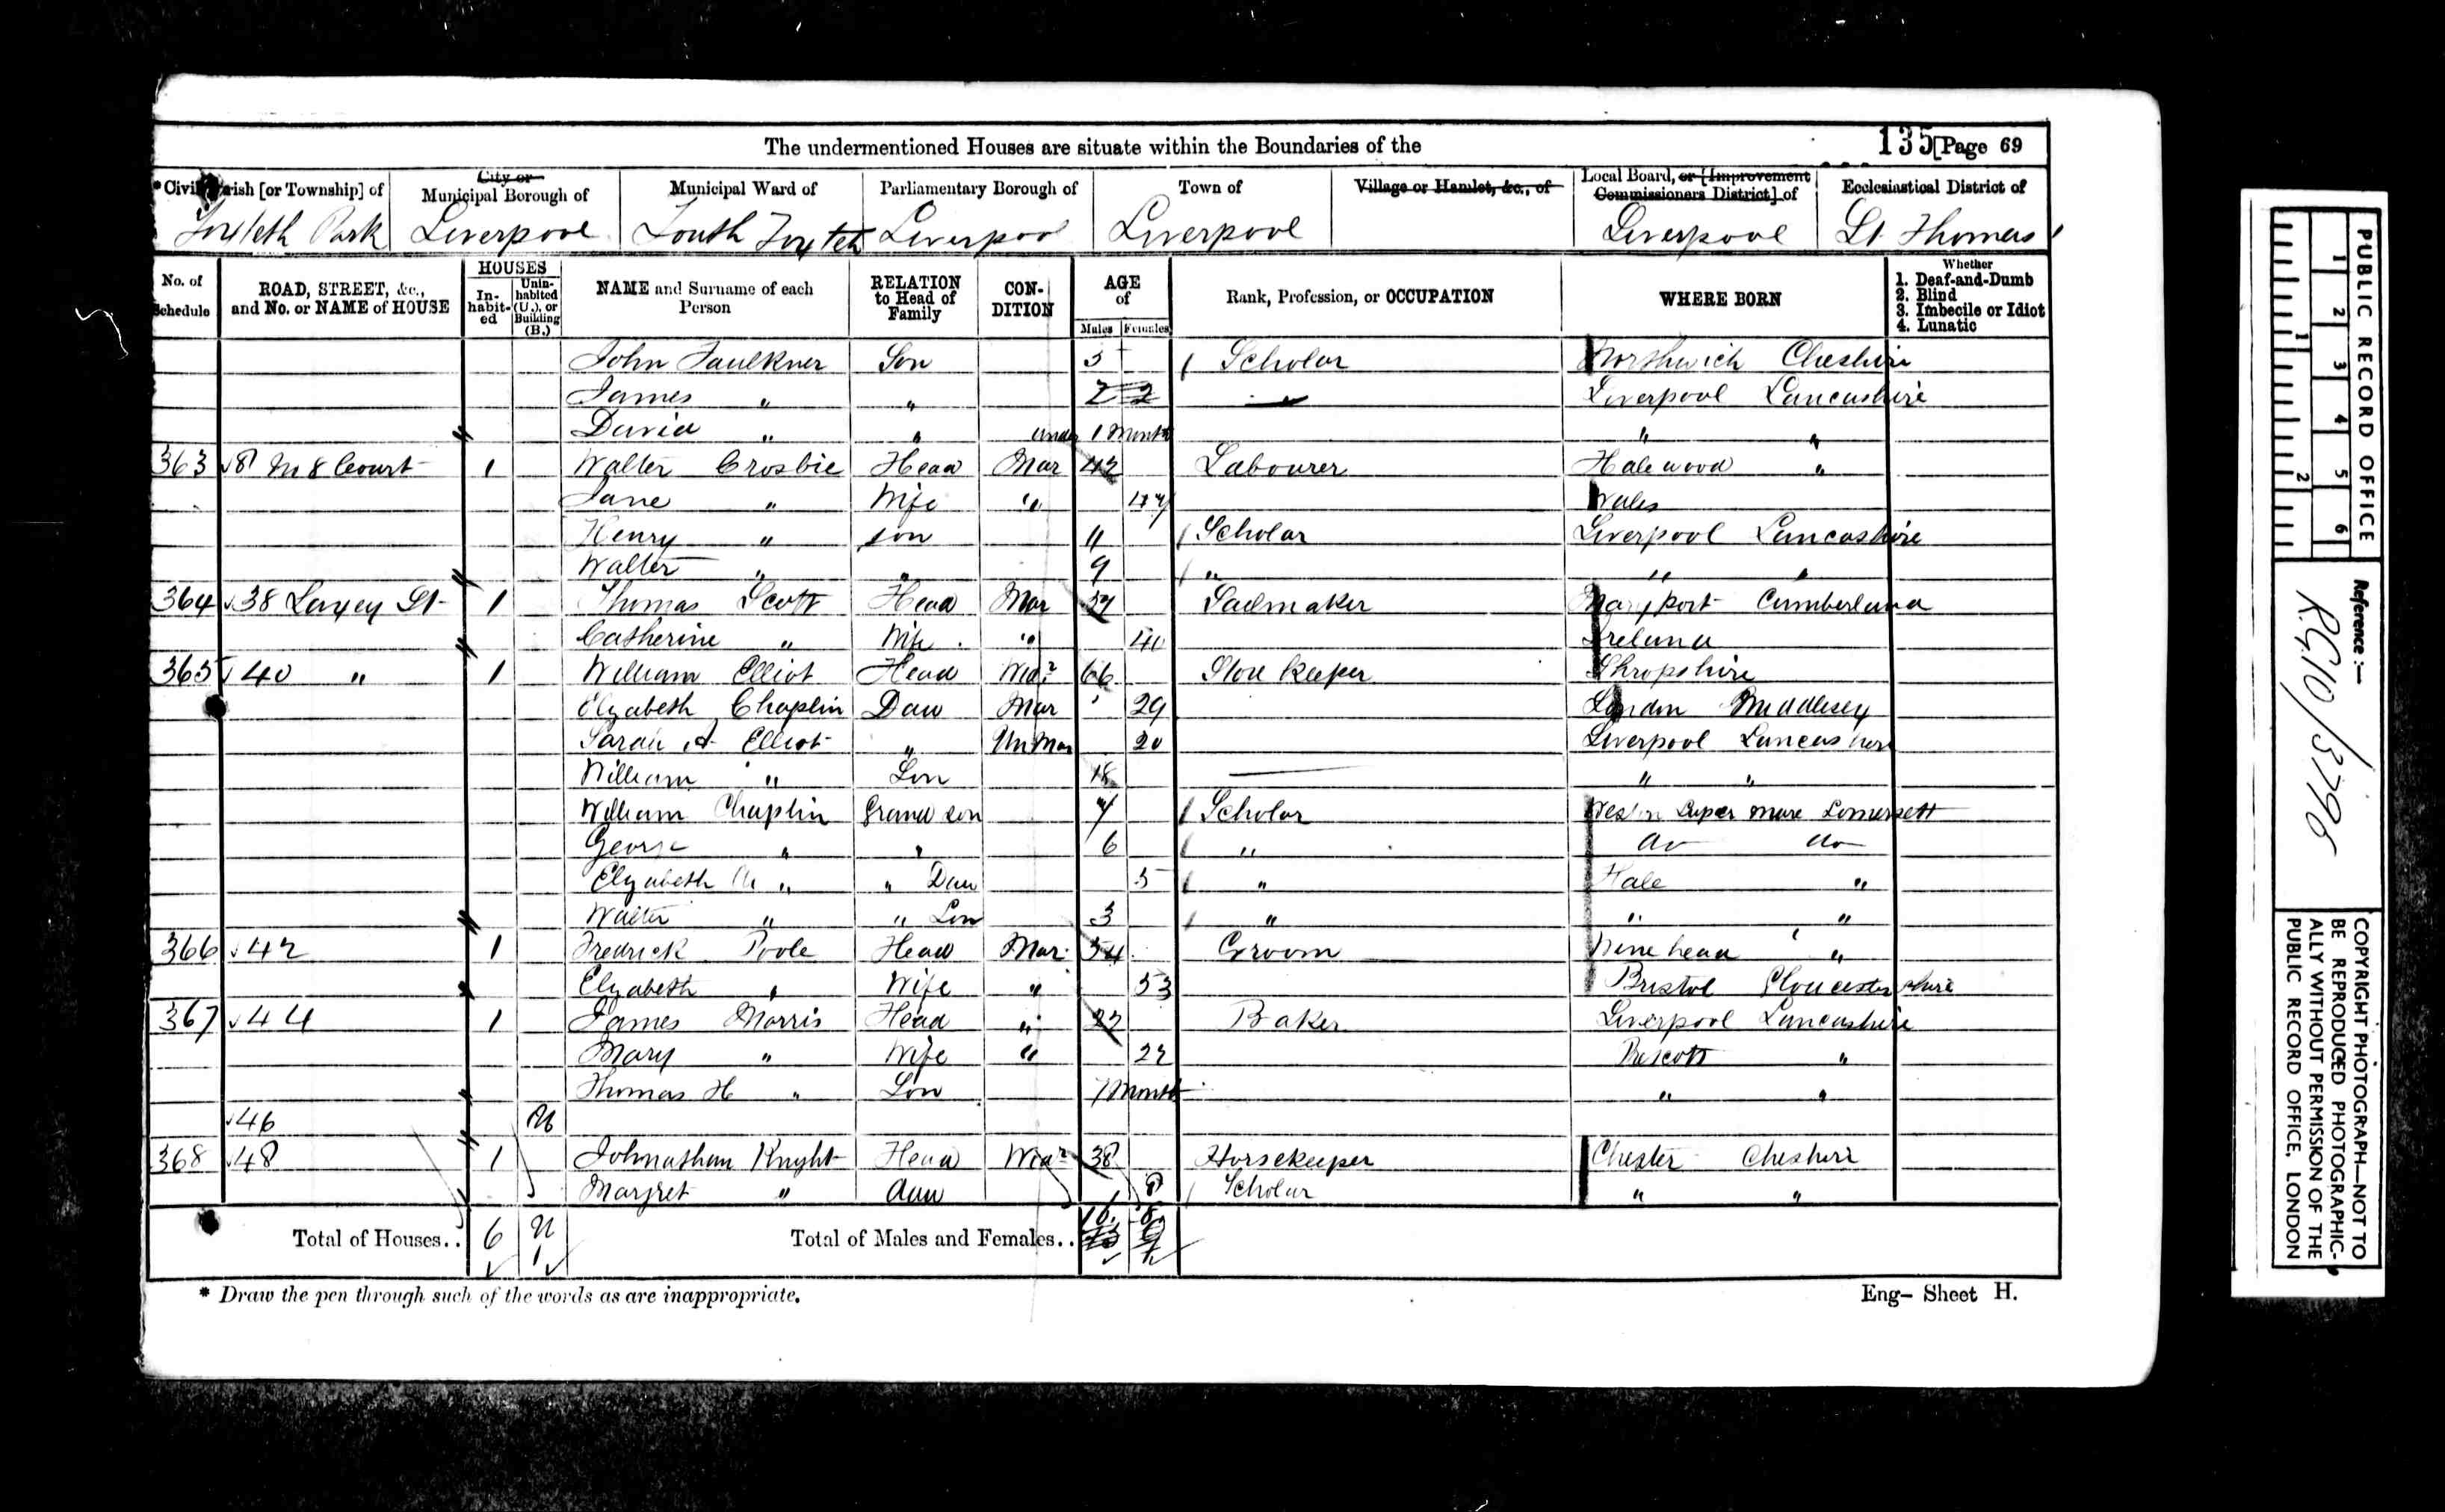 The undermentioned Houses are situate within the Boundaries of the 135 [Page 69
*Civil Parish [or Township] of Toxteth Park
City or Municipal Borough of Liverpool
Municipal Ward of South Toxteth
Parliamentary Borough of Liverpool
Town of Liverpool
Village or Hamlet, &c., of
Local Board, or [Improvement Commissioners District] of Liverpool
Ecclesiastical District of St Thomas
No. of Schedule
ROAD, STREET, &c., and No. or NAME of HOUSE
HOUSES
In-habit-ed
Unin-habited (U.), or Building (B.)
NAME and Surname of each Person
RELATION to Head of Family
CON-DITION
AGE of
Males Females
Rank, Profession, or OCCUPATION
WHERE BORN
Whether
1. Deaf-and-Dumb
2. Blind
3. Imbecile or Idiot
4. Lunatic
John Faulkner Son 5 Scholar Northwich Cheshire
James " " 2 Liverpool Lancashire
David " " under 1 Month " "
363 8 in 8 Court 1 Walter Crosbie Head Mar 42 Labourer Halewood "
Jane " Wife " 47 Wales
Henry " son 11 Scholar Liverpool Lancashire
Walter " " 9 " " "
364 38 Laxey St 1 Thomas Scott Head Mar Sailmaker Maryport Cumberland
Catherine " Wife " 40 Ireland
365 40 " 1 William Elliot Head Widr 66 Store Keeper Shropshire
Elizabeth Chaplin Dau Mar 29 London Middlesex
Sarah A Elliot " UnMar 20 Liverpool Lancashire
William " Son 18 " "
William Chaplin Grand son 7 Scholar Weston Super Mare Somersett
George " " 6 " do do
Elizabeth " " Dau 5 " Hale "
Walter " " Son 3 " " "
366 42 1 Fredrick Poole Head Mar 54 Groom "
Elizabeth " Wife " 53 Bristol Gloucestershire
367 44 1 James Morris Head " 27 Baker Liverpool Lancashire
Mary " Wife " 22 Prescott "
Thomas H " Son 7 Month " "
46 U
368 48 1 Johnathan Knight Head Widr 38 Horsekeeper Chester Cheshire
Margret " dau 8 Scholar " "
Total of Houses.. 6 U 1 Total of Males and Females.. 16 8
* Draw the pen through such of the words as are inappropriate.
Eng– Sheet H.
PUBLIC RECORD OFFICE
1 2 3 4 5 6
1 2
Reference :—
R.G.10/3796
COPYRIGHT PHOTOGRAPH—NOT TO
BE REPRODUCED PHOTOGRAPHIC-
ALLY WITHOUT PERMISSION OF THE
PUBLIC RECORD OFFICE, LONDON